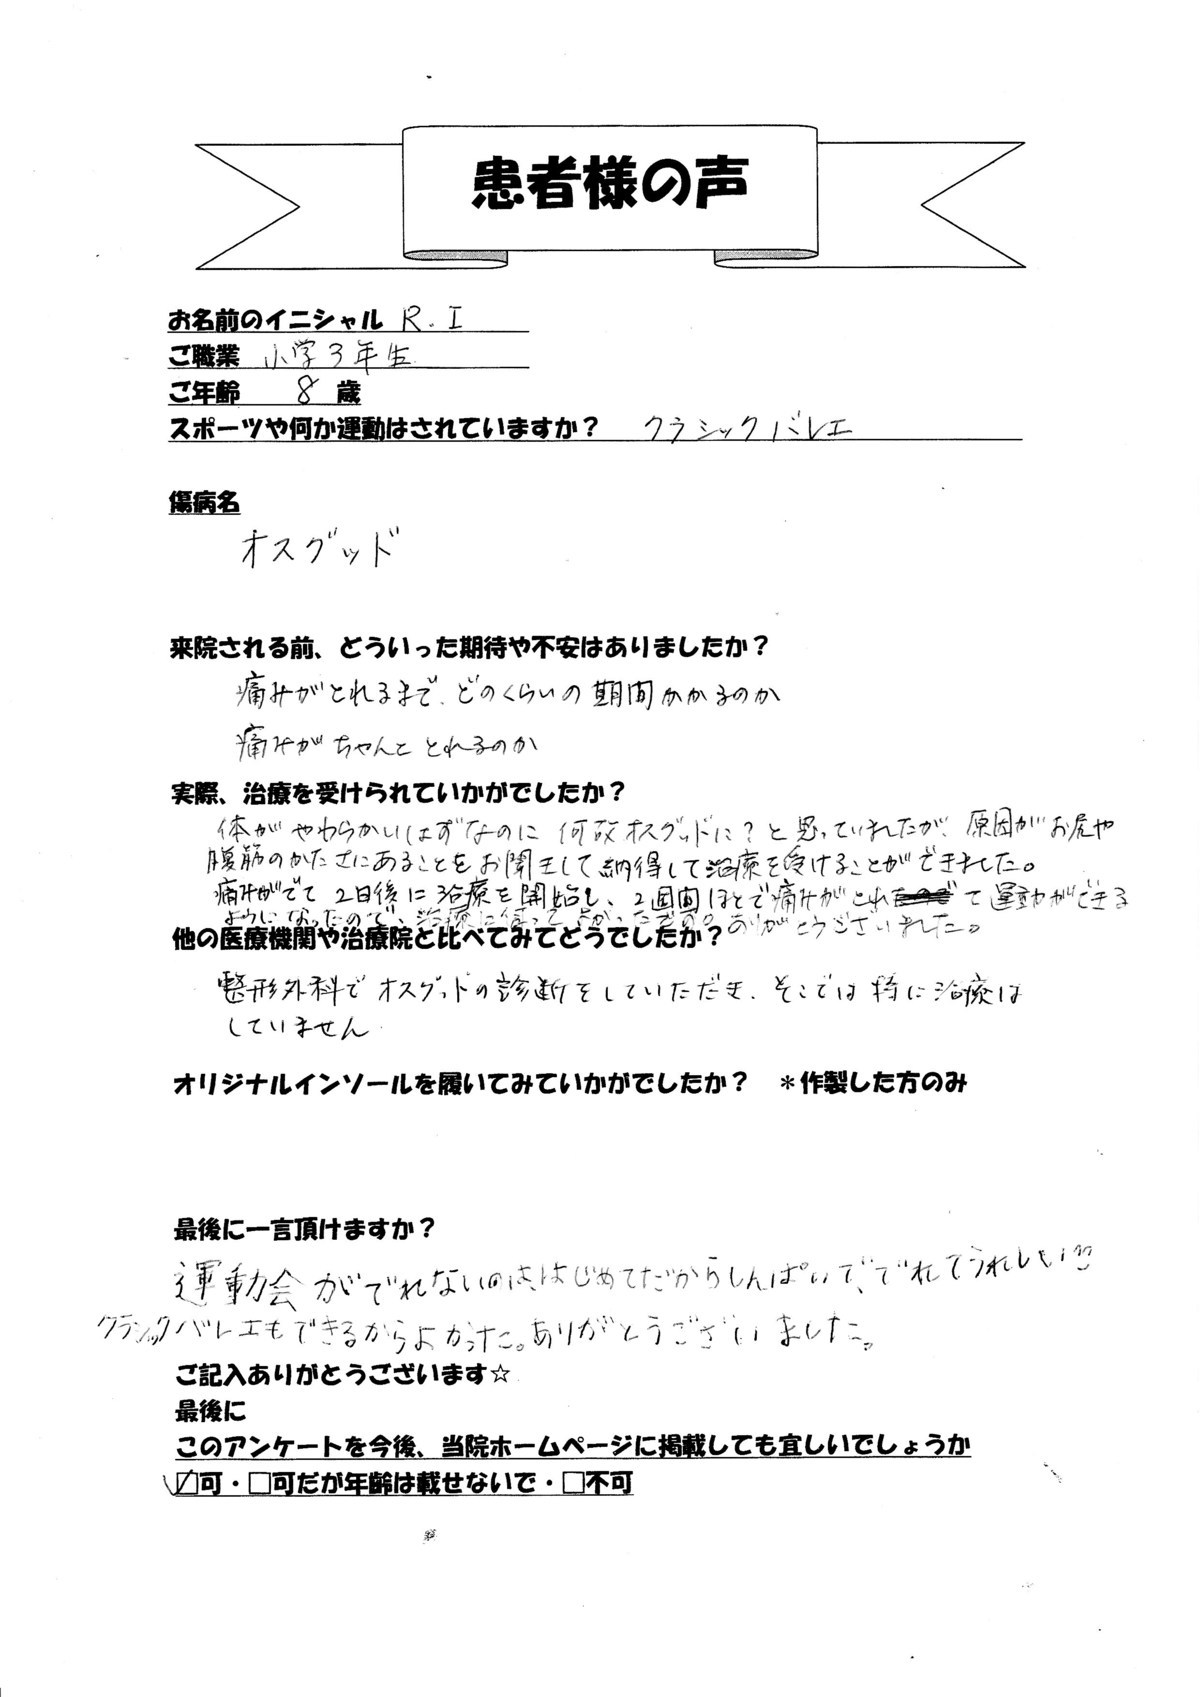 患者様の声
お名前のイニシャル R.I
ご職業 小学3年生
ご年齢 8 歳
スポーツや何か運動はされていますか？ クラシックバレエ
傷病名
オスグッド
来院される前、どういった期待や不安はありましたか？
痛みがとれるまで、どのくらいの期間かかるのか
痛みがちゃんととれるのか
実際、治療を受けられていかがでしたか？
体がやわらかいはずなのに何故オスグッドに？と思っていましたが、原因がお尻や
腹筋のかたさにあることをお聞きして納得して治療を受けることができました。
痛みがでて2日後に治療を開始し、2週間ほどで痛みがとれて運動ができる
ようになったので、治療に ありがとうございました。
他の医療機関や治療院と比べてみてどうでしたか？
整形外科でオスグッドの診断をしていただき、そこでは特に治療は
していません
オリジナルインソールを履いてみていかがでしたか？ ＊作製した方のみ
最後に一言頂けますか？
運動会がでれないのは、はじめてだからしんぱいで、でれてうれしい!!
クラシックバレエもできるからよかった。ありがとうございました。
ご記入ありがとうございます☆
最後に
このアンケートを今後、当院ホームページに掲載しても宜しいでしょうか
☑可・□可だが年齢は載せないで・□不可